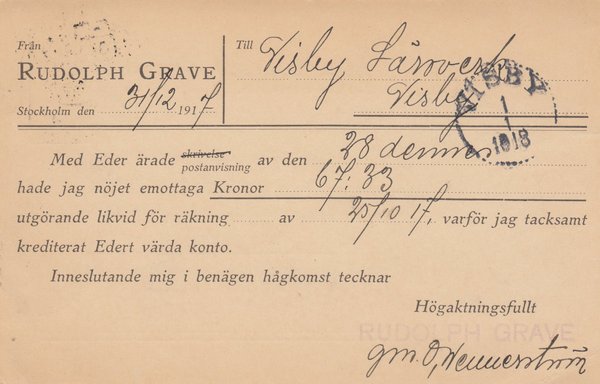 Från
RUDOLPH GRAVE
Stockholm den 31/12 1917
Till Visby Lärov
Visby
VISBY
1
1
1918
Med Eder ärade skrivelse postanvisning av den 28 dennes
hade jag nöjet emottaga Kronor 67:33
utgörande likvid för räkning av 25/10 17, varför jag tacksamt
krediterat Edert värda konto.
Inneslutande mig i benägen hågkomst tecknar
Högaktningsfullt
RUDOLPH GRAVE
gm. O, Wennerström